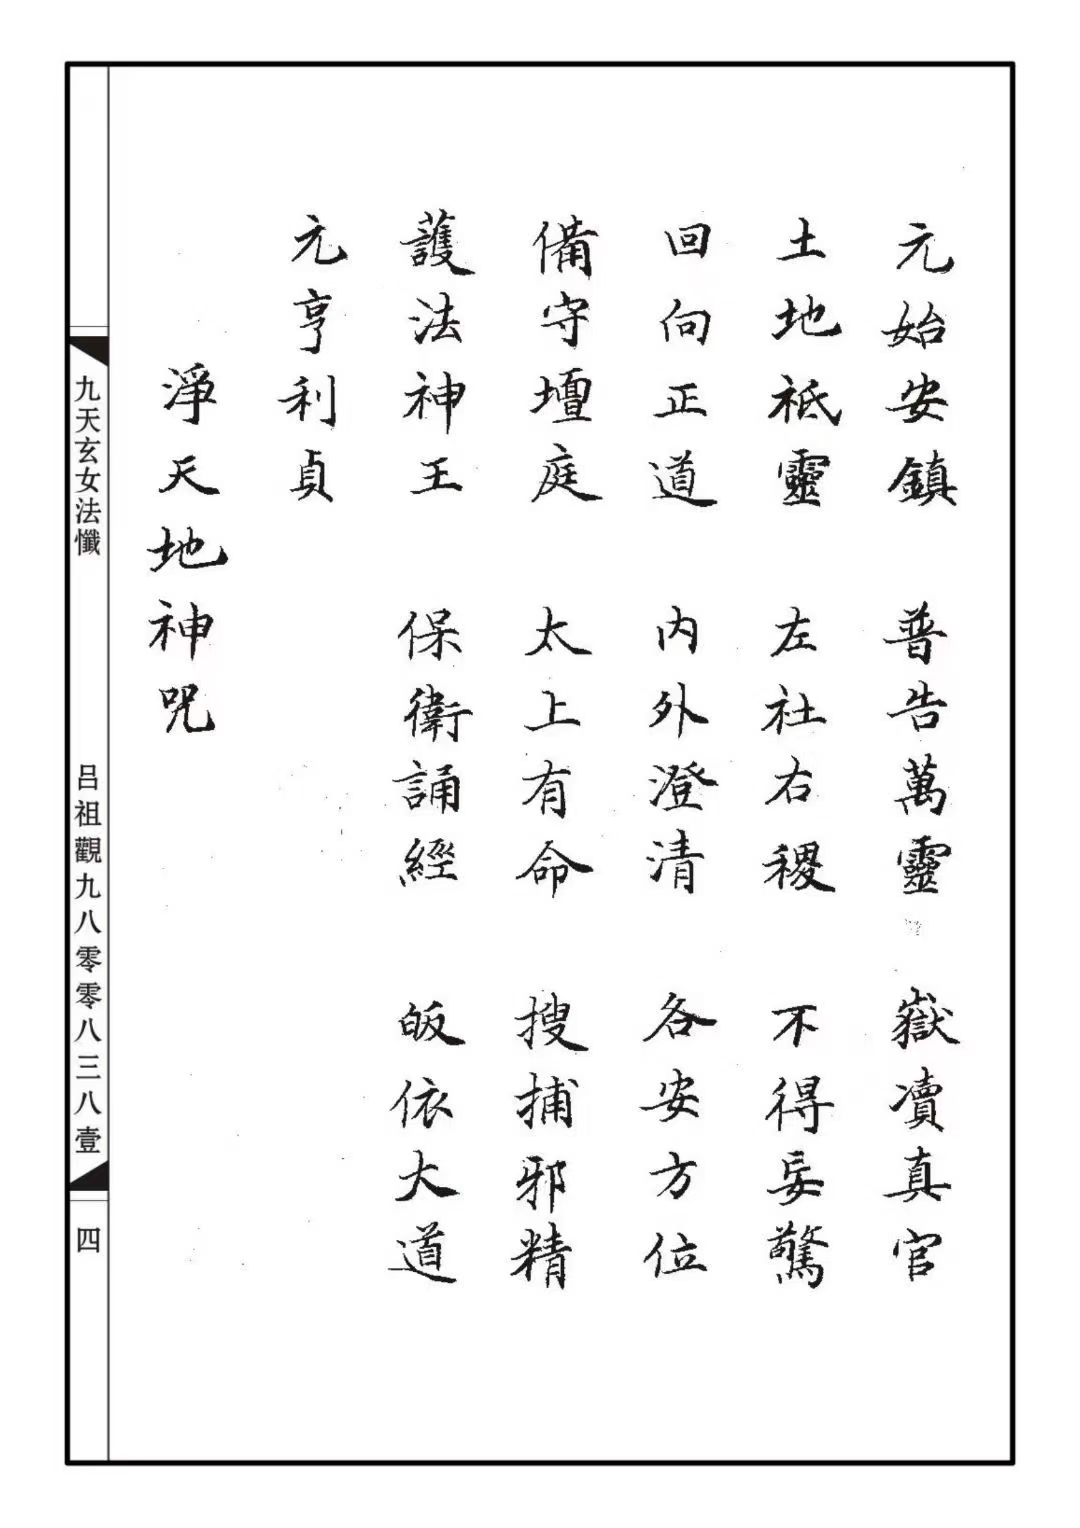 元始安鎮　普告萬靈　嶽凟真官
土地祇靈　左社右稷　不得妄驚
回向正道　內外澄清　各安方位
備守壇庭　太上有命　搜捕邪精
護法神王　保衛誦經　皈依大道
元亨利貞
淨天地神咒
九天玄女法懺
吕祖觀九八零零八三八壹
四